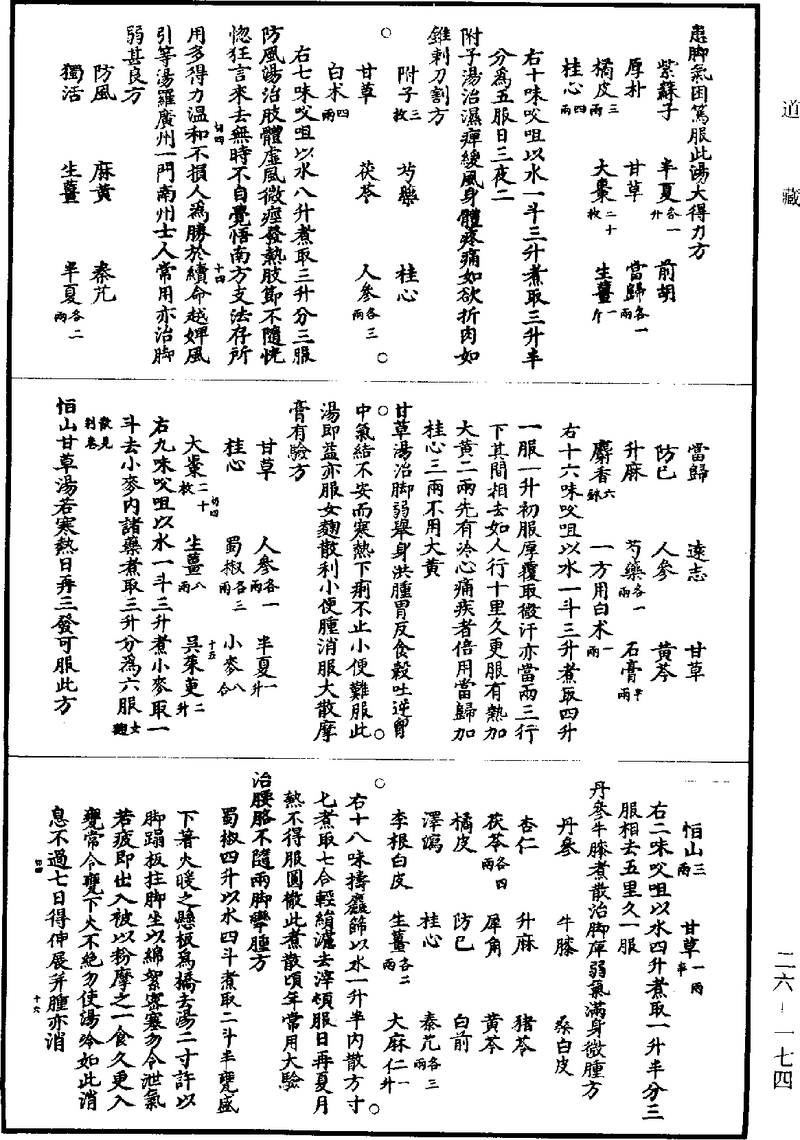 道藏
患脚氣困篤服此湯大得力方
紫蘇子 半夏各一升 前胡
厚朴 甘草 當歸各一兩
橘皮三兩 大棗二十枚 生薑一斤
桂心四兩
右十味㕮咀以水一斗三升煮取三升半
分為五服日三夜二
附子湯治濕痺緩風身體疼痛如欲折肉如
錐刺刀割方
附子三枚 芍藥 桂心
甘草 茯苓 人參各三兩
白朮四兩
右七味㕮咀以水八升煮取三升分三服
防風湯治肢體虛風微痙發熱肢節不隨恍
惚狂言來去無時不自覺悟南方支法存所
用多得力溫和不損人為勝於續命越婢風
引等湯羅廣州一門南州士人常用亦治脚
弱甚良方
防風 麻黃 秦艽
獨活 生薑 半夏各二兩
當歸 遠志 甘草
防已 人參 黃芩
升麻 芍藥各一兩 石膏半兩
麝香六銖 一方用白朮一兩
右十六味㕮咀以水一斗三升煮取四升
一服一升初服厚覆取微汗亦當兩三行
下其間相去如人行十里久更服有熱加
大黃二兩先有冷心痛疾者倍用當歸加
桂心三兩不用大黃
甘草湯治脚弱舉身洪腫胃反食穀吐逆胷
中氣結不安而寒熱下痢不止小便難服此
湯即益亦服女麴散利小便腫消服大散摩
膏有驗方
甘草 人參各一兩 半夏一升
桂心 蜀椒各三兩 小麥八合
大棗二十枚 生薑八兩 吳茱萸二升
右九味㕮咀以水一斗三升煮小麥取一
斗去小麥內諸藥煮取三升分為六服女麴
散見別卷
恒山甘草湯若寒熱日再三發可服此方
恒山三兩 甘草一兩半
右二味㕮咀以水四升煮取一升半分三
服相去五里久一服
丹參牛膝煮散治脚痺弱氣滿身微腫方
丹參 牛膝 桑白皮
杏仁 升麻 豬苓
茯苓各四兩 犀角 黃芩
橘皮 防已 白前
澤瀉 桂心 秦艽各三兩
李根白皮 生薑各二兩 大麻仁一升
右十八味擣麤篩以水一升半內散方寸
七煮取七合輕絹濾去滓頓服日再夏月
熱不得服圓散此煮散頃年常用大驗
治腰胳不隨兩脚攣腫方
蜀椒四升以水四斗煮取二斗半甕盛
下著火暖之懸板為橋去湯二寸許以
脚蹋板拄脚坐以綿絮密塞勿令泄氣
若疲即出入被以粉摩之一食久更入
甕常令甕下火不絕勿使湯冷如此消
息不過七日得伸展并腫亦消
二六-一七四